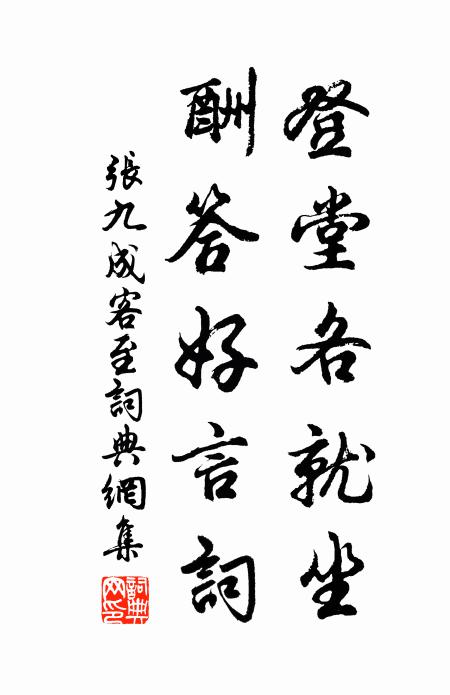 登堂各就坐
酬答好言詞
張九成客至詞典網集
詞典網印